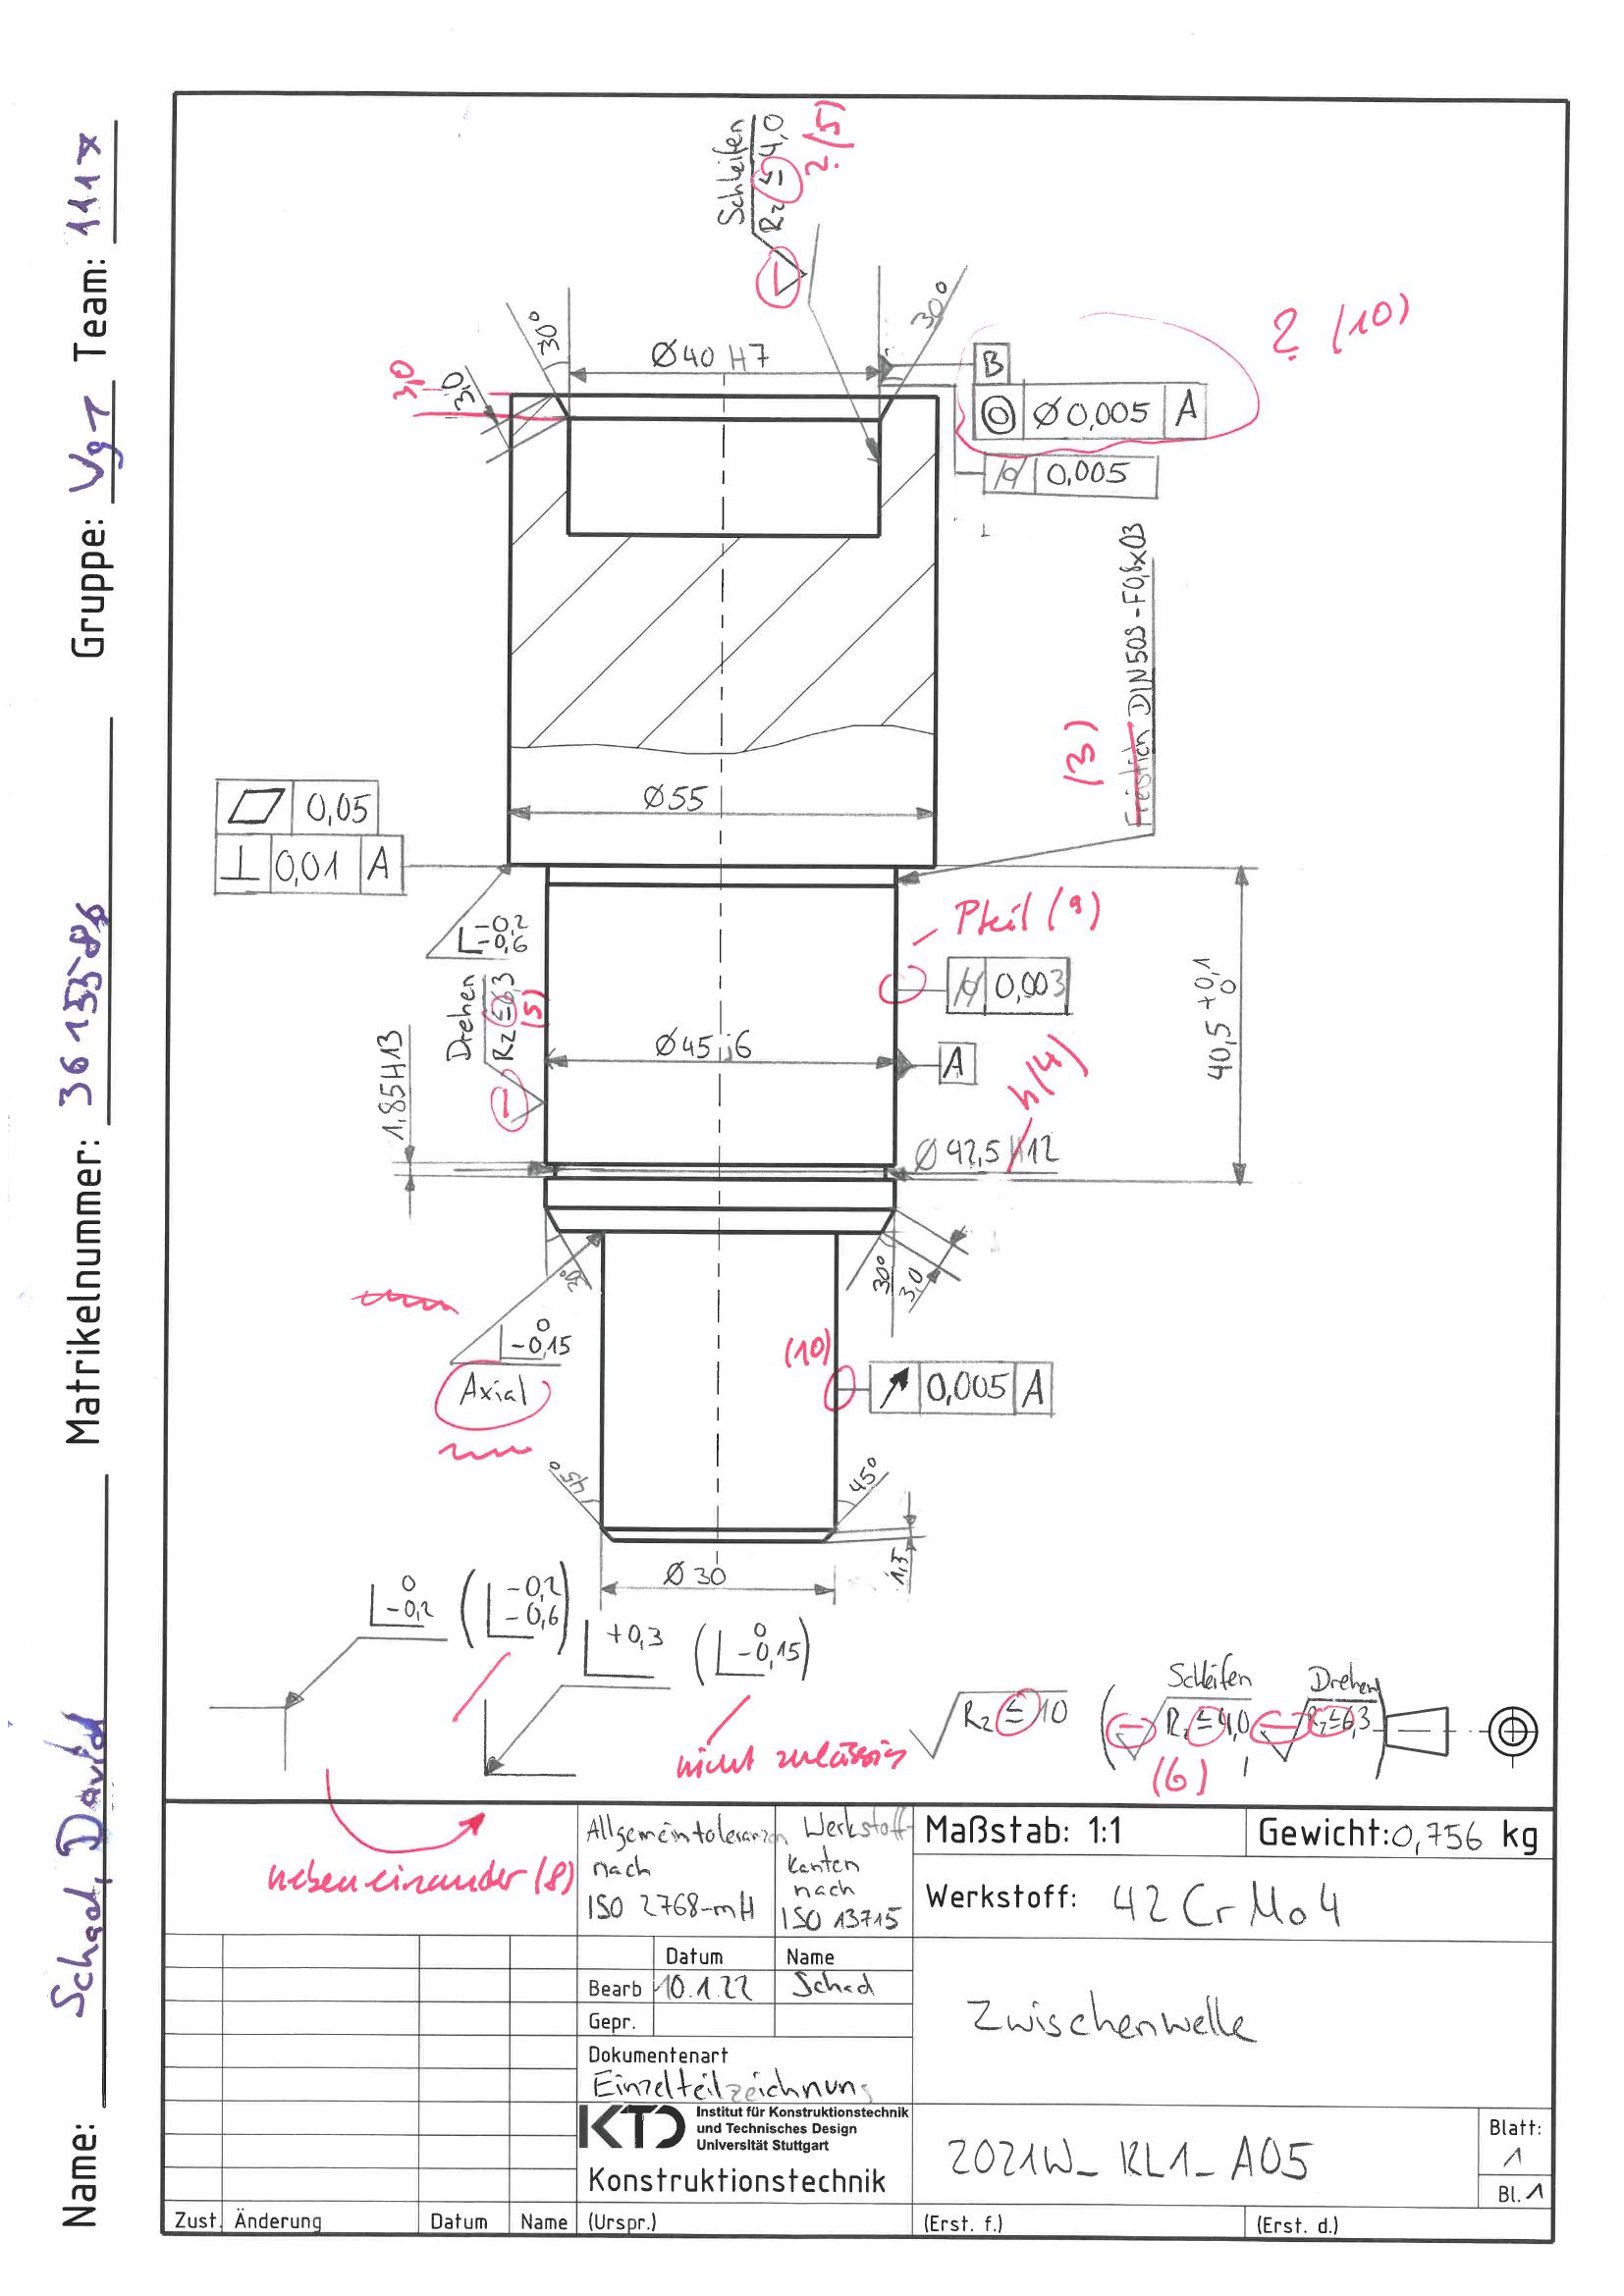 Name: Schad, David Matrikelnummer: 3615586 Gruppe: Vg1 Team: 111x
Schleifen
Rz ≤ 4,0
? (5)
30°
Ø40 H7
30°
3,0
3,0
B
◎ Ø0,005 A
? (10)
⌭ 0,005
Freistich DIN 509 - F0,6x03
(3)
Ø55
⏥ 0,05
⊥ 0,01 A
-0,2
-0,6
Pfeil (9)
⌭ 0,003
Drehen
Rz ≤ 6,3
(5)
40,5 +0,1 0
Ø45 j6
A
1,85H13
h (4)
Ø42,5 H12
30°
30°
3,0
0
-0,15
Axial
(10)
↗ 0,005 A
45°
45°
1,5
Ø30
0
-0,2
(-0,2
-0,6)
+0,3
(0
-0,15)
nicht zulässig
Rz ≤ 10
(Schleifen
Rz ≤ 4,0
,
Drehen
Rz ≤ 6,3)
(6)
nebeneinander (8)
Allgemeintoleranzen
nach
ISO 2768-mH
Werkstoff-
kanten
nach
ISO 13715
Maßstab: 1:1
Gewicht: 0,756 kg
Werkstoff: 42CrMo4
Datum Name
Bearb 10.1.22 Schad
Gepr.
Zwischenwelle
Dokumentenart
Einzelteilzeichnung
KTD
Institut für Konstruktionstechnik
und Technisches Design
Universität Stuttgart
Konstruktionstechnik
2021W_KL1_A05
Blatt:
1
Bl. 1
Zust. Änderung Datum Name (Urspr.) (Erst. f.) (Erst. d.)